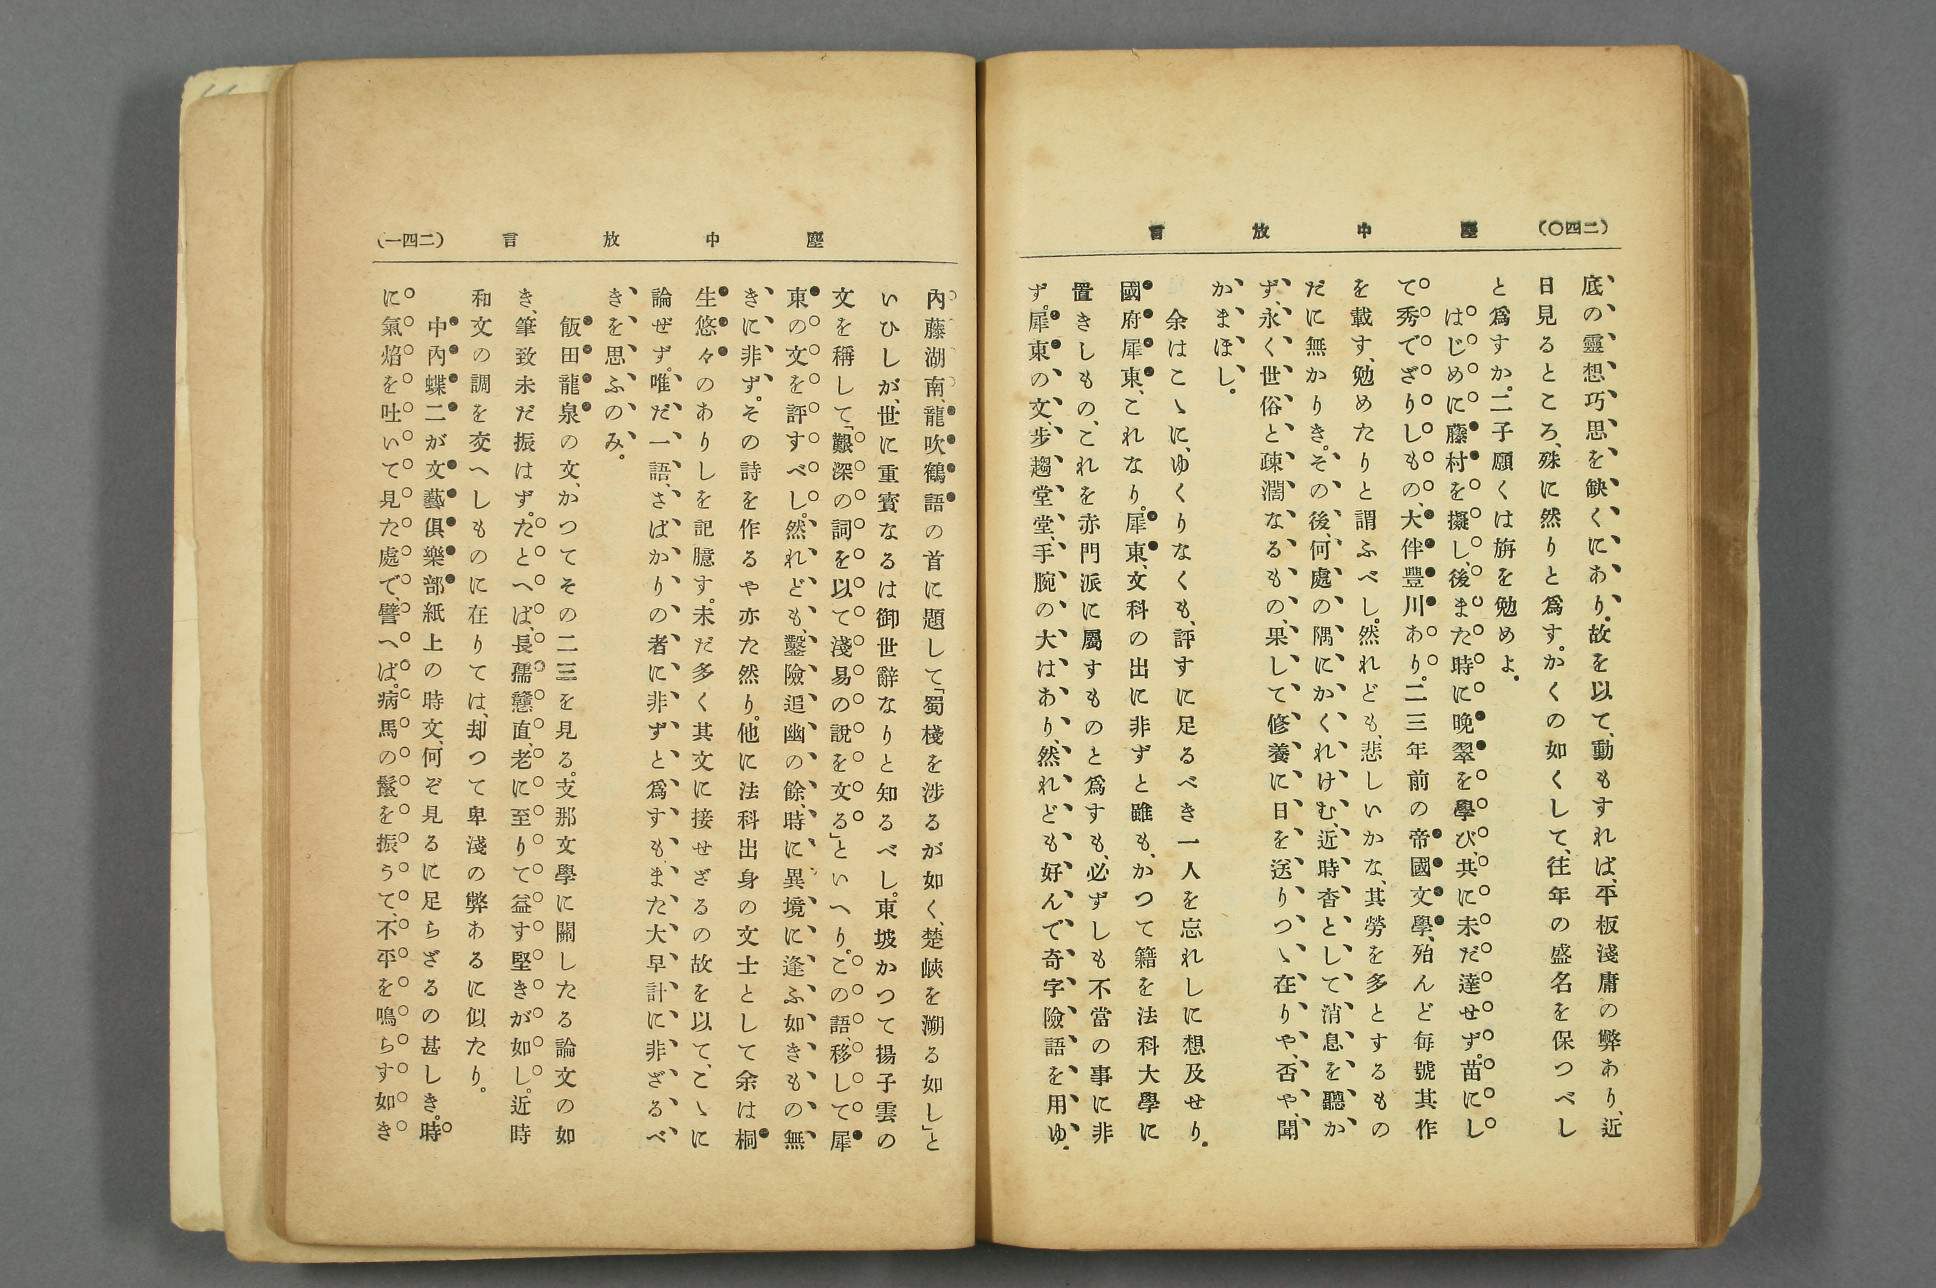 (二四〇)
塵中放言
底の靈想巧思を缺くにあり。故を以て、動もすれば、平板淺庸の弊あり、近
日見るところ、殊に然りと爲す。かくの如くして、往年の盛名を保つべし
と爲すか。二子願くは旃を勉めよ。
はじめに藤村を擬し、後また時に晩翠を學び、共に未だ達せず。苗にし
て秀でざりしもの、大伴豐川あり。二三年前の帝國文學、殆んど毎號其作
を載す、勉めたりと謂ふべし。然れども、悲しいかな、其勞を多とするもの
だに無かりき。その後、何處の隅にかくれけむ、近時杳として消息を聽か
ず、永く世俗と疎濶なるもの、果して修養に日を送りつゝ在りや、否や、聞
かまほし。
余はこゝに、ゆくりなくも、評すに足るべき一人を忘れしに想及せり。
國府犀東、これなり。犀東、文科の出に非ずと雖も、かつて籍を法科大學に
置きしもの、これを赤門派に屬すものと爲すも、必ずしも不當の事に非
ず。犀東の文、步趨堂堂、手腕の大はあり、然れども好んで奇字險語を用ゆ。
塵中放言
(二四一)
內藤湖南、龍吹鶴語の首に題して「蜀棧を涉るが如く、楚峽を溯る如し」と
いひしが、世に重寶なるは御世辭なりと知るべし。東坡かつて揚子雲の
文を稱して、「艱深の詞を以て淺易の說を文る」といへり。この語、移して犀
東の文を評すべし。然れども、鑿險追幽の餘、時に異境に逢ふ如きもの無
きに非ず。その詩を作るや亦た然り。他に法科出身の文士として余は桐
生悠々のありしを記臆す。未だ多く其文に接せざるの故を以て、こゝに
論ぜず。唯だ一語、さばかりの者に非ずと爲すも、また大早計に非ざるべ
きを思ふのみ。
飯田龍泉の文、かつてその二三を見る。支那文學に關したる論文の如
き、筆致未だ振はず。たとへば、長孺戇直、老に至りて益す堅きが如し。近時
和文の調を交へしものに在りては、却つて卑淺の弊あるに似たり。
中內蝶二が文藝倶樂部紙上の時文、何ぞ見るに足らざるの甚しき。時
に氣焰を吐いて見た處で、譬へば。病馬の鬣を振うて、不平を鳴らす如き